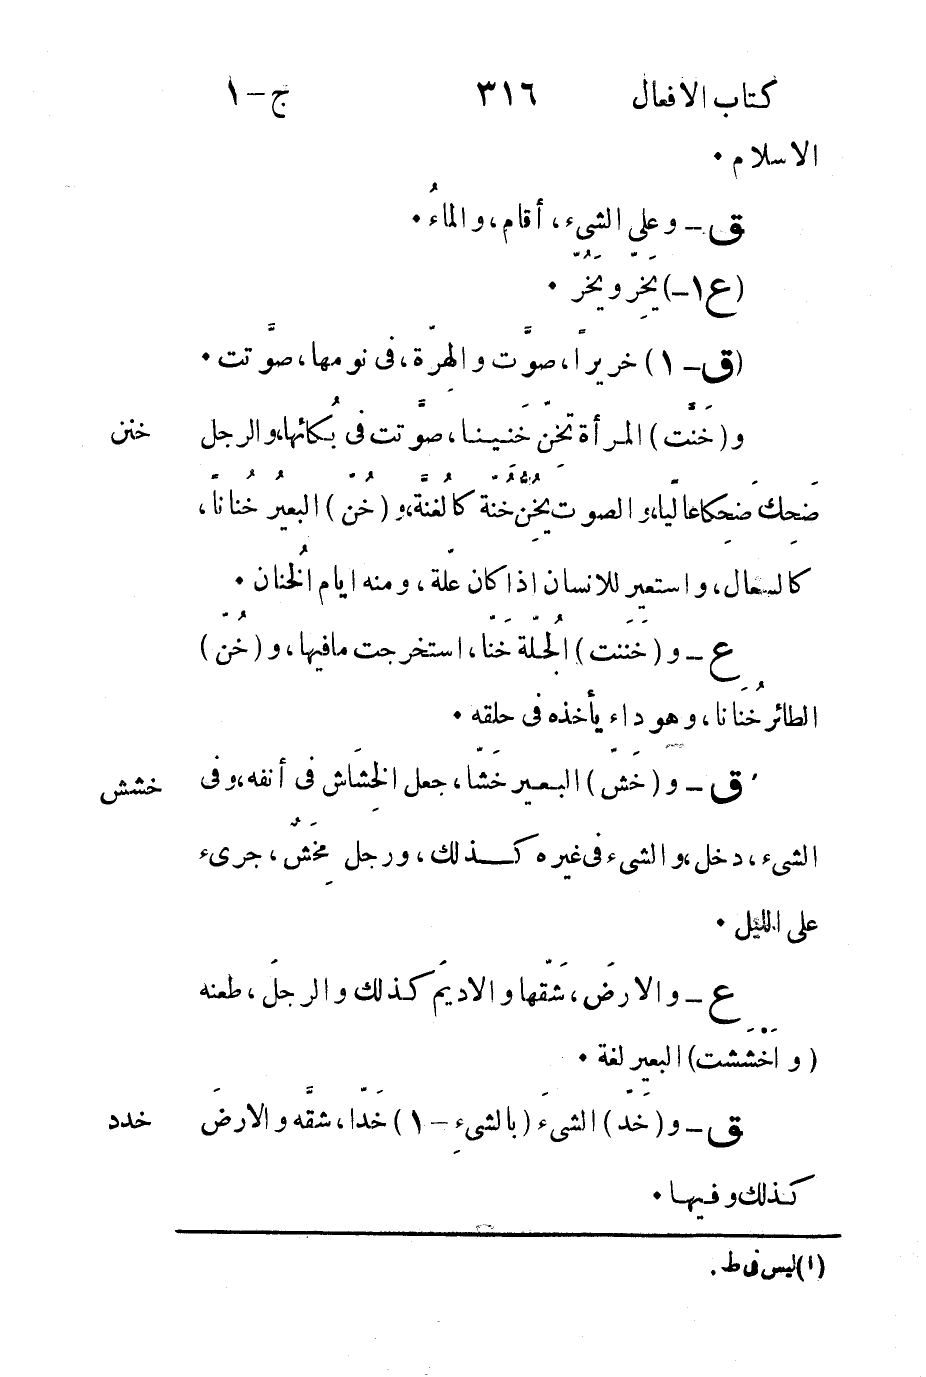 كتاب الافعال ٣١٦ ج–١
الاسلام •
ق – و على الشىء ، أقام ، والماءُ •
(ع ١–) يَخِرّ و يَخُرّ •
(ق – ١) خريراً ، صوَّت والهِرّة ، فى نومها ، صوَّتت •
و (خَنَّت) المرأة تخِنّ خَنيناً ، صوَّتت فى بُكائها ، والرجل خنن
ضَحِك ضَحِكا عاليّا ، والصوت يَخُِنّ خُنة كالغُنَّة ، و (خُنّ) البعيرُ خُناناً ،
كالسعال ، واستعير للانسان اذا كان علّة ، و منه ايام الخُنان •
ع – و (خَنَنت) الجُلّة خَنّا ، استخرجت مافيها ، و (خُنّ)
الطائر خُنَانا ، وهو داء يأخذه فى حلقه •
ق – و (خَشّ) البعير خَشّا ، جعل الخِشَاش فى أنفه ، وفى خشش
الشىء ، دخل ، والشىء فى غيره كذلك ، ورجل مِخَشّ ، جرىء
على الليل •
ع – والارضَ ، شَقّها والاديمَ كذلك والرجلَ ، طعنه
( و أَخْشَشت) البعير لغة •
ق – و (خَدّ) الشىءَ (بالشىءِ – ١) خَدّا ، شقَّه والارضَ خدد
كذلك وفيها •
(١) ليس فى ط .